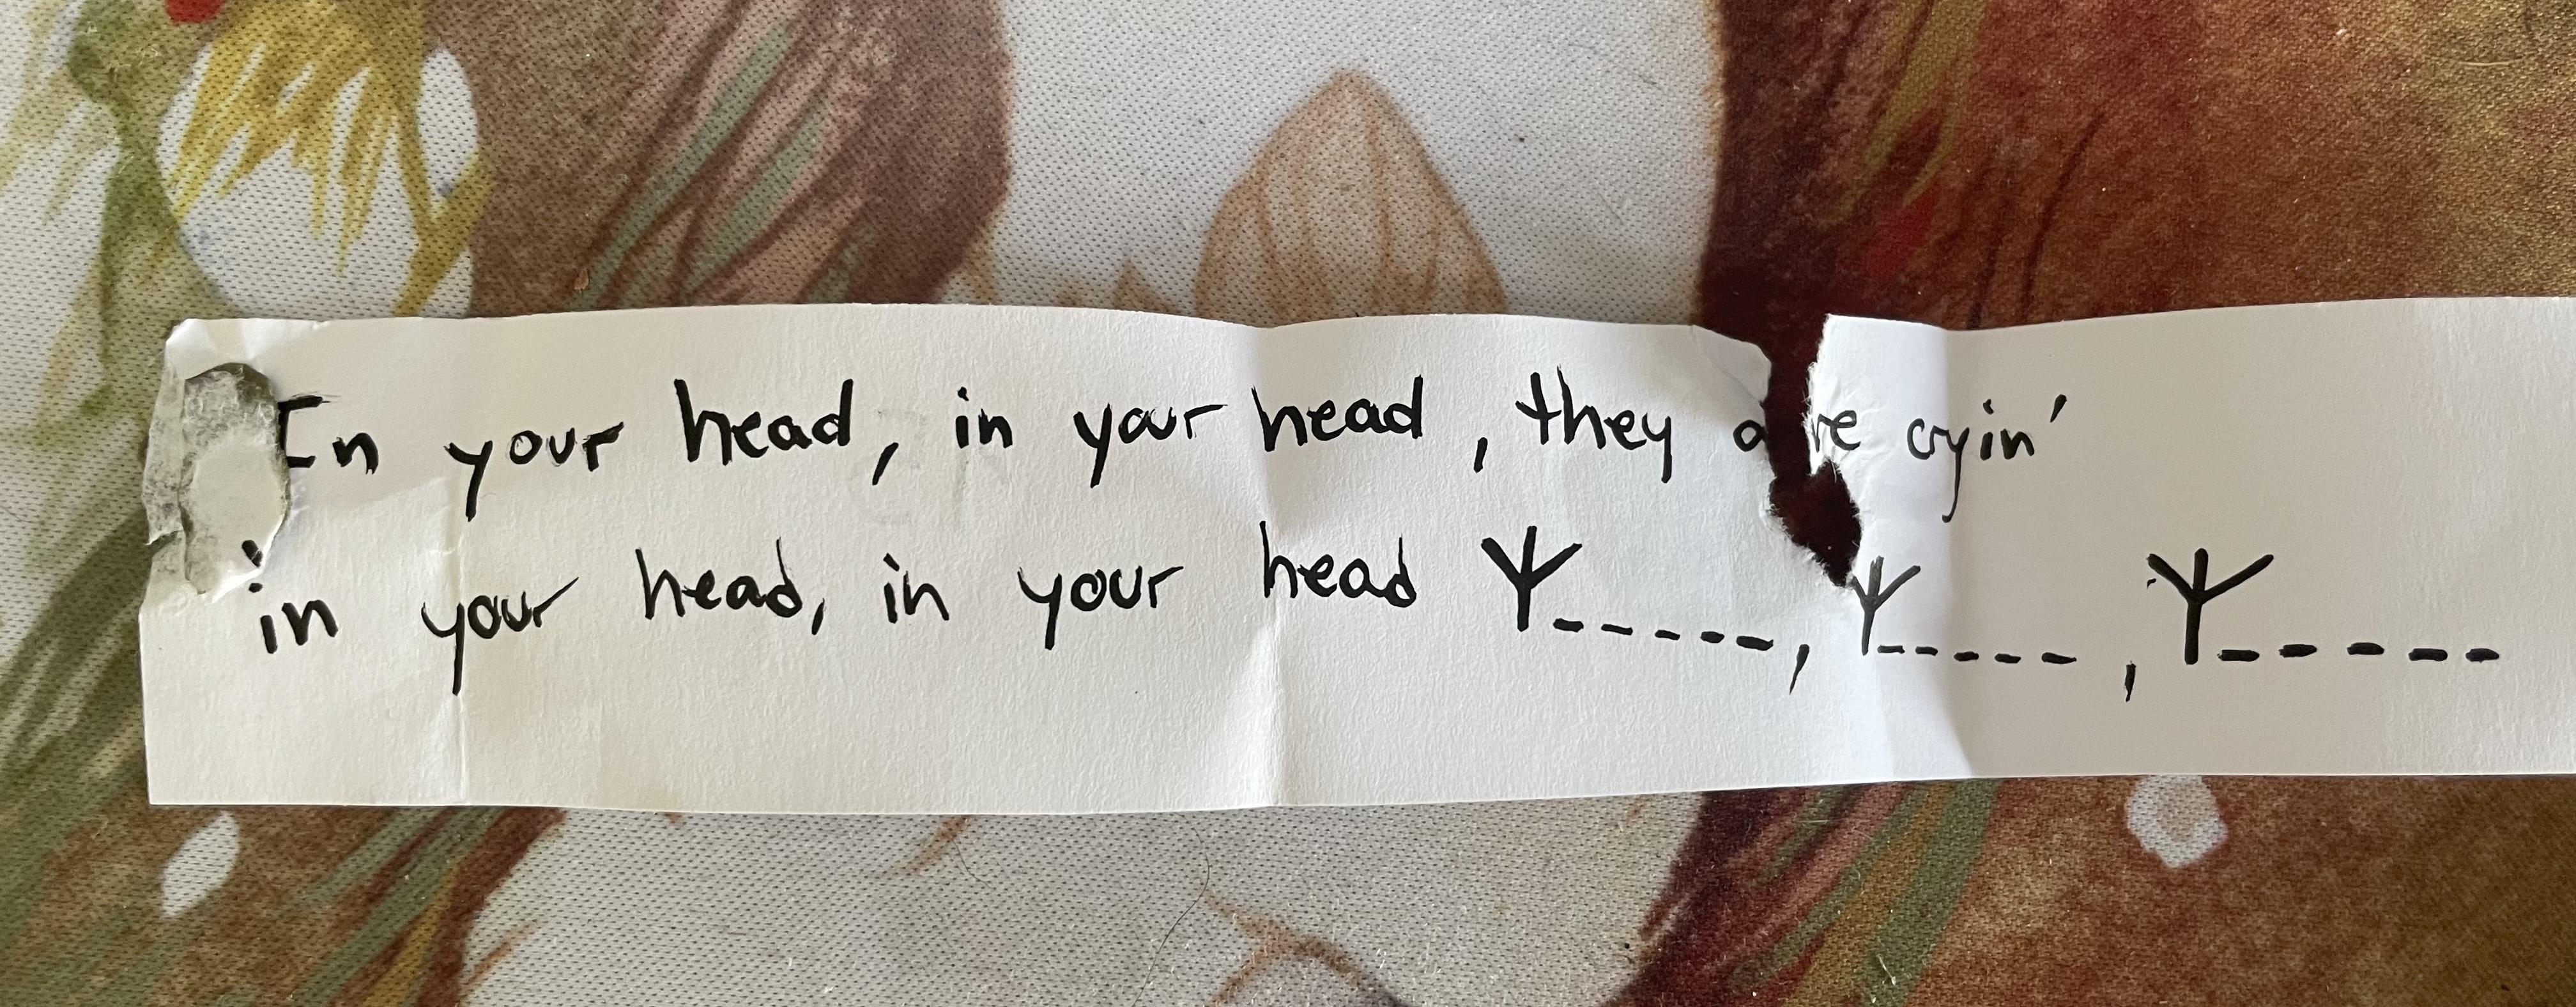 In your head, in your head, they are cryin'
in your head, in your head ᛉ-----, ᛉ-----, ᛉ-----